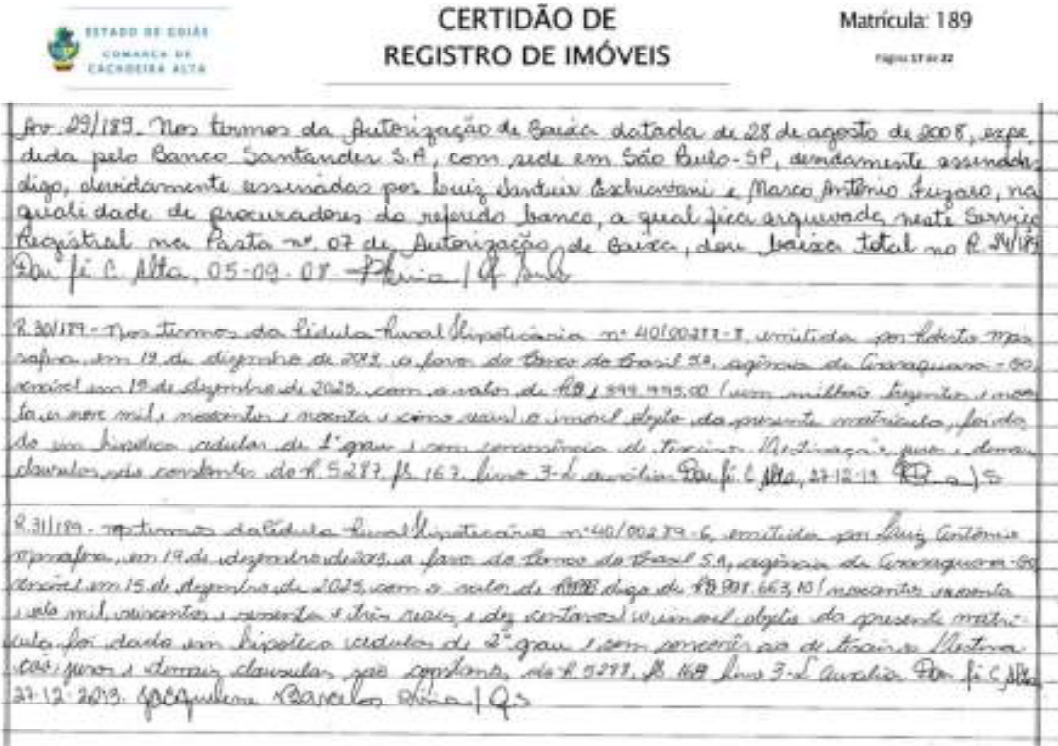 ESTADO DE GOIÁS
COMARCA DE
CACHOEIRA ALTA
CERTIDÃO DE
REGISTRO DE IMÓVEIS
Matrícula: 189
Página 17 de 22
Av. 29/189. Nos termos da Autorização de Baixa datada de 28 de agosto de 2008, expe
dida pelo Banco Santander S.A, com sede em São Paulo-SP, devidamente assinada,
digo, devidamente assinadas por Luiz e Marco Antônio, na
qualidade de procuradores do referido banco, a qual fica arquivada neste Serviço
Registral na Pasta nº. 07 de Autorização de Baixa, dou baixa total no R. 24/189
Dou fé C. Alta, 05-09-08
R.30/189 - Nos termos da Cédula Rural Hipotecária nº 40/00287-8, emitida por
em 19 de dezembro de a favor do Banco do Brasil S.A, agência de - GO
vencível em 15 de dezembro de 2025, com o valor de R$ 1.399.995,00 (um milhão trezentos e noven
ta e nove mil, novecentos e noventa e cinco reais) o imóvel objeto da presente matrícula, foi da
do em hipoteca cedular de 1º grau e sem concorrência de terceiros juros e demais
clausulas são constantes do R. 5287, fls 167 livro 3-L auxiliar Dou fé. C. Alta, 27-12-13
R.31/189 - termos da Cédula Rural Hipotecária nº 40/00289-6, emitida por Luiz Antônio
em 19 de dezembro de 2013, a favor do Banco do Brasil S.A, agência de - GO
vencível em 15 de dezembro de 2025, com o valor de digo de R$ (novecentos
mil, seiscentos e sessenta e três reais e dez centavos) o imóvel objeto da presente matrí-
cula foi dado em hipoteca cedular de 2º grau e sem de
juros e demais clausulas são do R. 5288, fls livro 3-L Auxiliar Dou fé C. Alta
27-12-2013. Jacqueline Barcelos